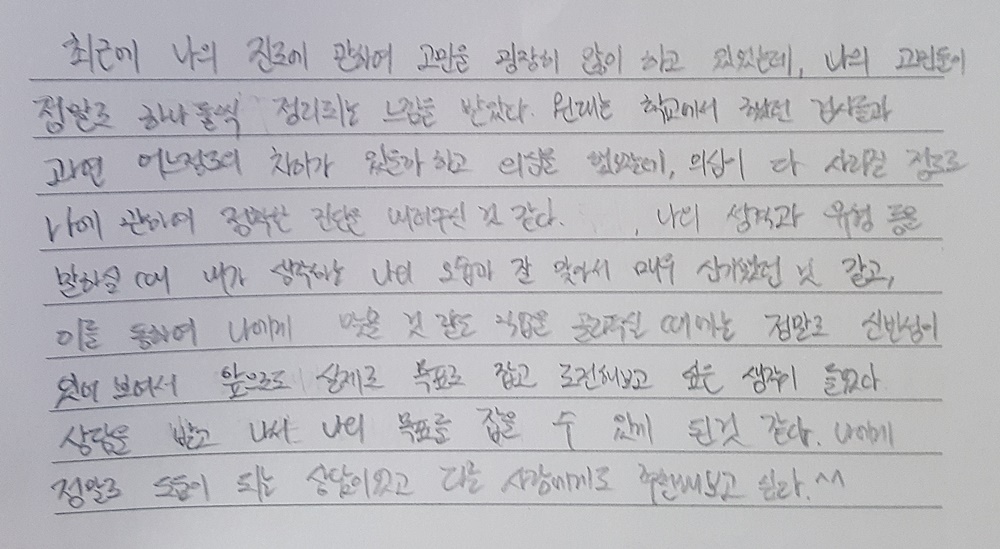 최근에 나의 진로에 관하여 고민을 굉장히 많이 하고 있었는데, 나의 고민들이
정말로 하나 둘씩 정리되는 느낌을 받았다. 원래는 학교에서 했던 검사들과
과연 어느정도의 차이가 있을까 하고 의심을 했었는데, 의심이 다 사라질 정도로
나에 관하여 정확한 진단을 내려주신 것 같다. , 나의 성격과 유형 등을
말하실 때 내가 생각하는 나의 모습과 잘 맞아서 매우 신기했던 것 같고,
이를 통하여 나에게 맞을 것 같은 직업을 골라주실 때에는 정말로 신빙성이
있어 보여서 앞으로도 실제로 목표로 잡고 도전해보고 싶은 생각이 들었다.
상담을 받고 나서 나의 목표를 잡을 수 있게 된것 같다. 나에게
정말로 도움이 되는 상담이었고 다른 사람에게도 추천해보고 싶다.^^